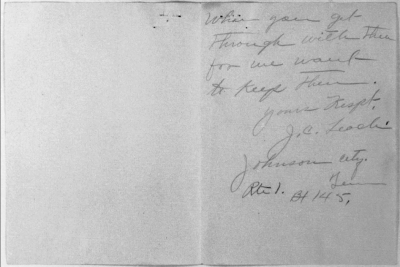 When you get
through with them
for we want
to keep them.
yours Respt,
J.C. Leach.
Johnson city.
Tenn
Rte 1. BX 145,